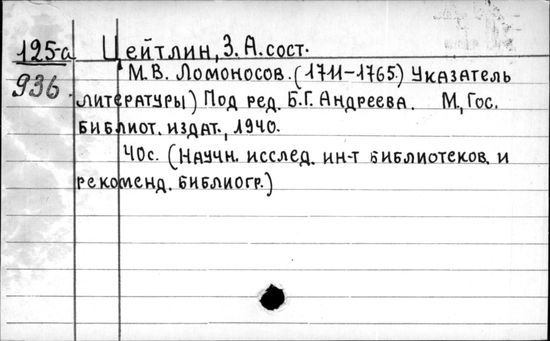 125-а Цейтлин, З. А. сост.
936. М. В. Ломоносов. (1711-1765.) Указатель
литературы) Под ред. Б. Г. Андреева. М, Гос.
библиот. издат., 1940.
40с. (Научн. исслед. ин-т библиотеков. и
рекоменд. библиогр.)